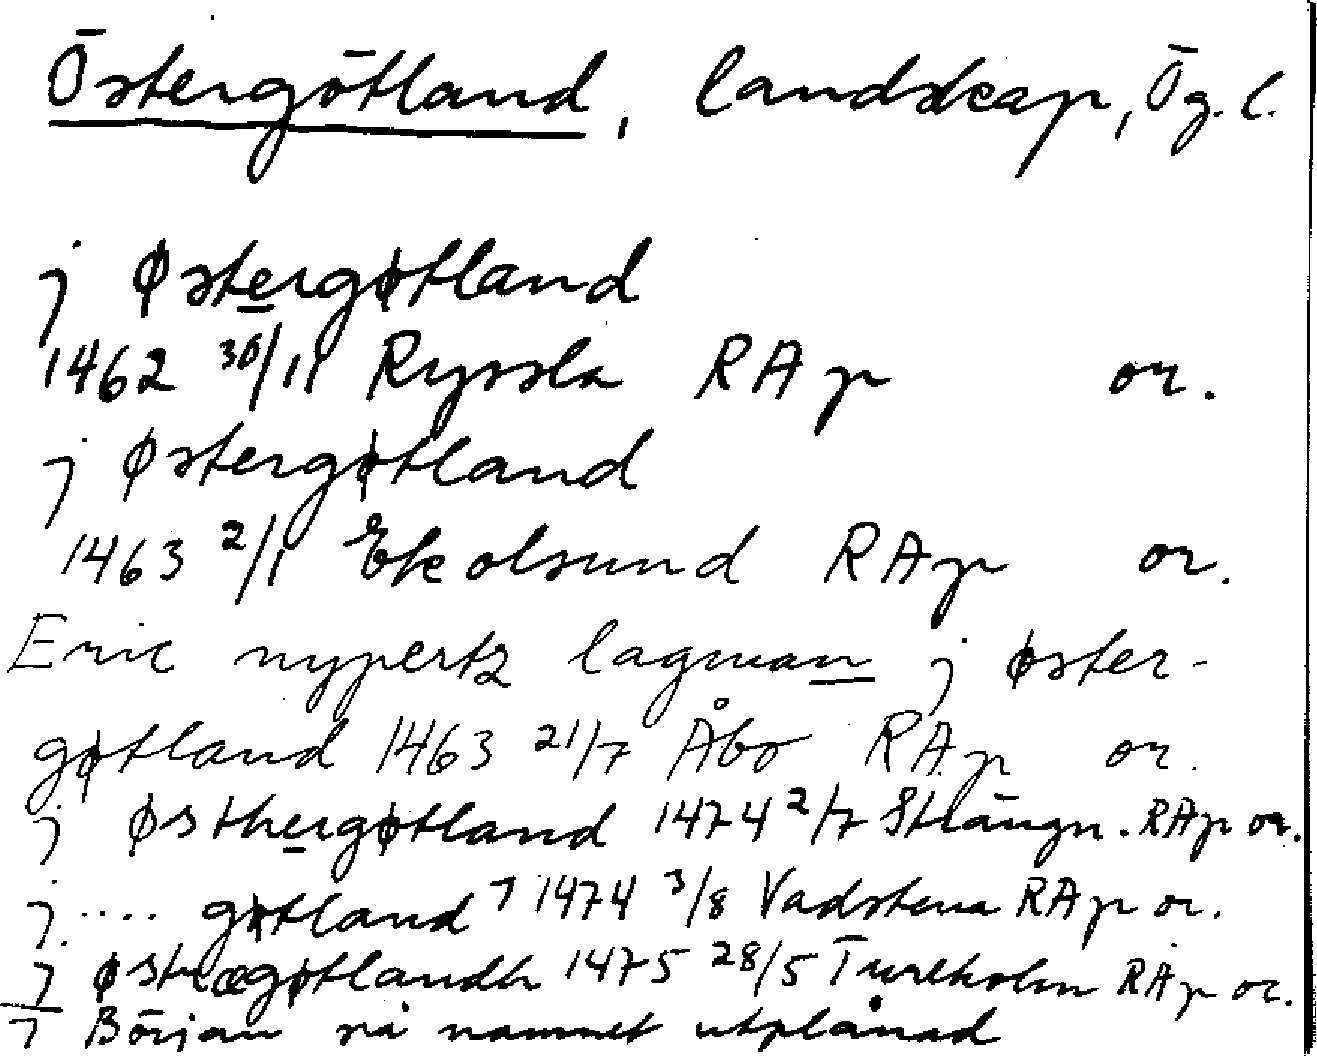 Östergötland, landskap, Ög. l.
j østergøtland
1462 30/11 Ryssla RAp or.
j østergøtland
1463 2/1 Ekolsund RAp or.
Eric nypertz lagman j øster-
gøtland 1463 21/7 Åbo RAp or.
j østhergøtland 1474 2/7 Strängn. RAp or.
j .... gøtland 7 1474 3/8 Vadstena RAp or.
j østregøtlandh 1475 28/5 Tureholm RAp or.
7 Början på namnet utplånad